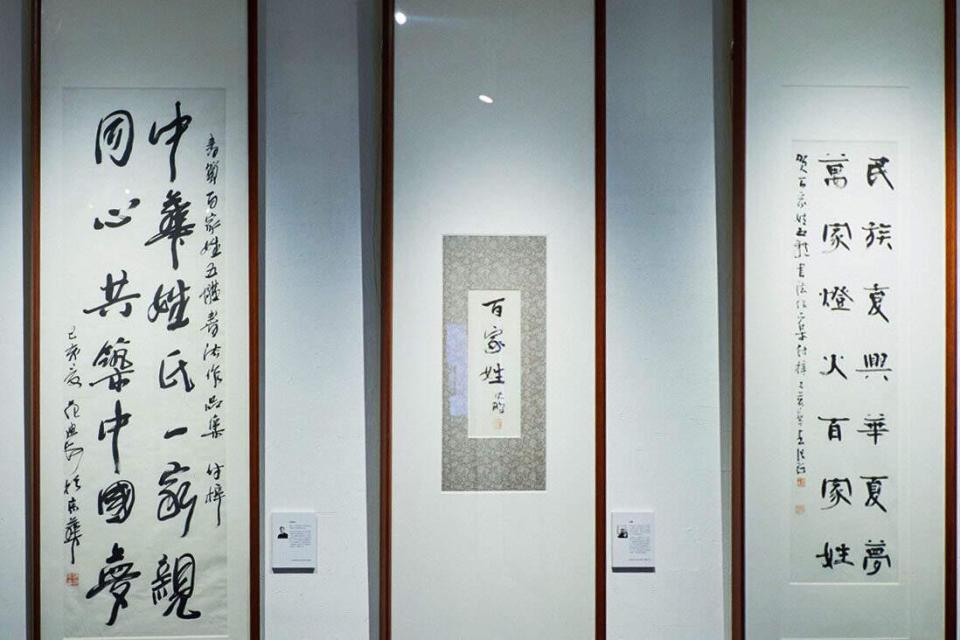 賀百家姓五體書法作品集 付梓
中華姓氏一家親
同心共築中國夢
己亥夏 范迪安 於京華
百家姓
民族复興華夏夢
萬家燈火百家姓
賀百家姓五體書法作品集付梓